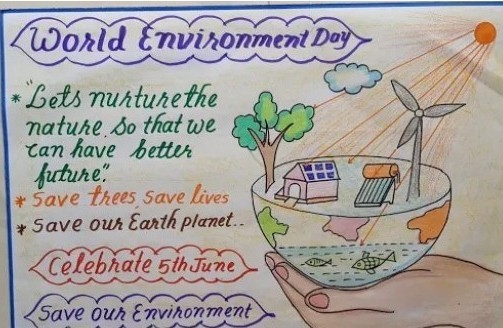 World Environment Day
* "Lets nurture the
nature. So that we
can have better
future".
* Save trees, Save lives
* Save our Earth planet..
Celebrate 5th June
Save our Environment